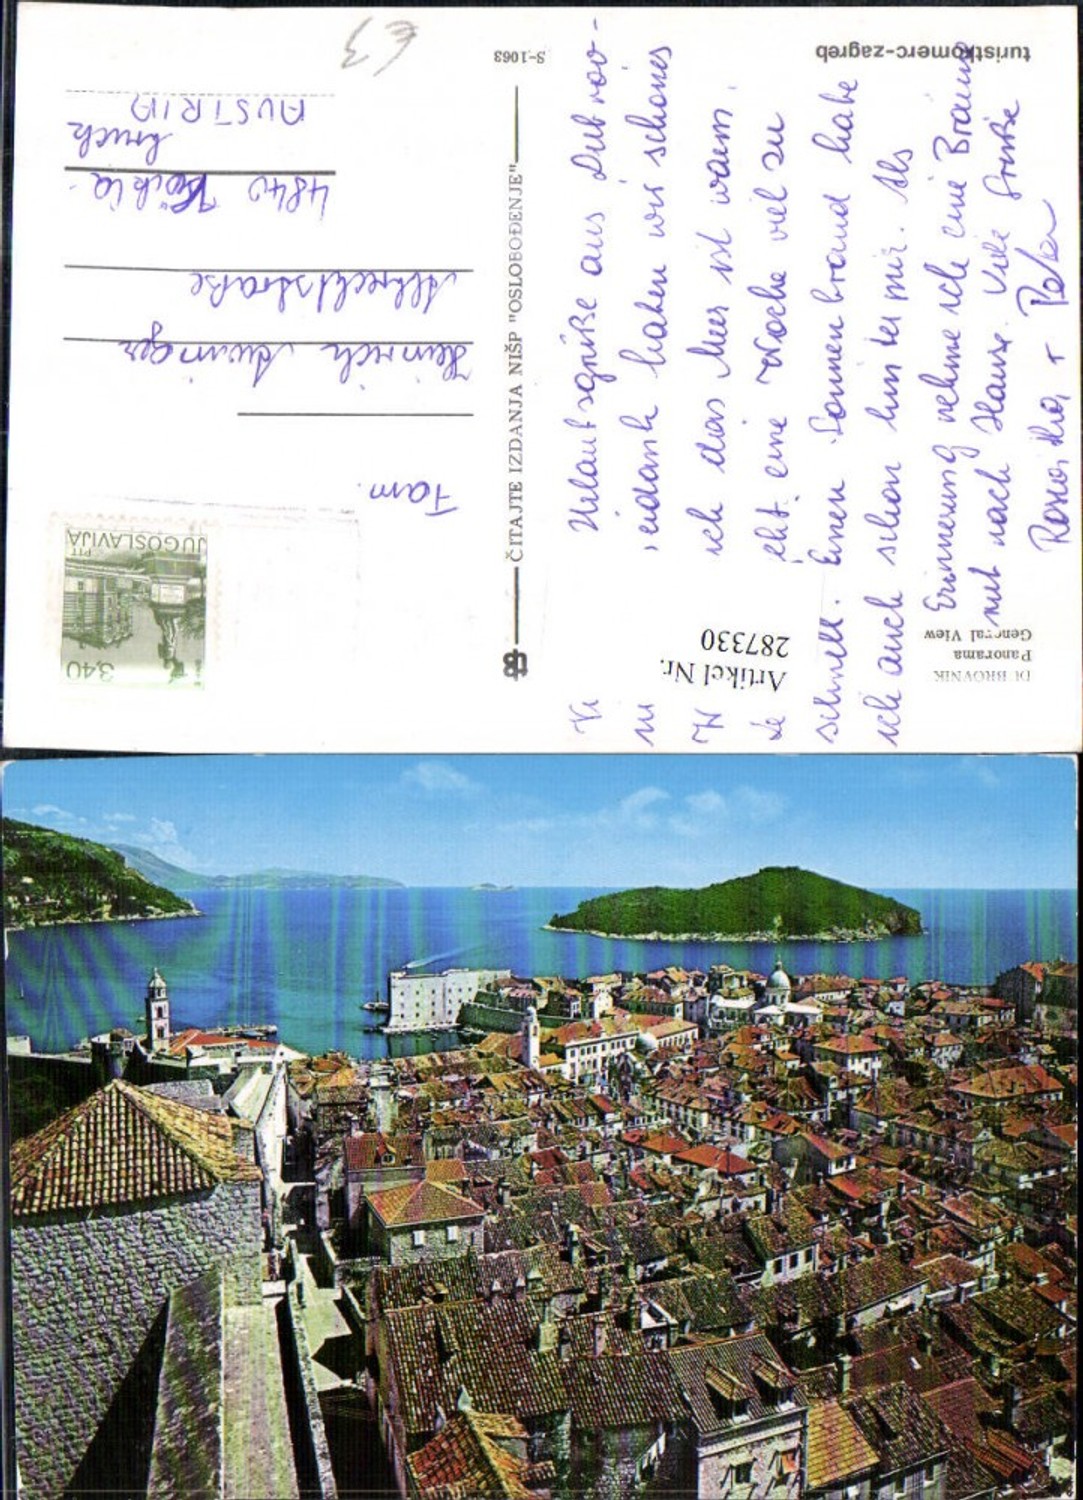 DUBROVNIK
Panorama
General View
turistkomerc-zagreb
S-1063
ČITAJTE IZDANJA NIŠP "OSLOBOĐENJE"
Artikel Nr.
287330
3,40
PTT
JUGOSLAVIJA
Urlaubsgrüße aus Dubrov-
haben wir schönes
ich das Meer ist warm.
eine Woche viel zu
schnell. Einen Sonnenbrand habe
ich auch schon hinter mir. Als
Erinnerung nehme ich eine Bräune
mit nach Hause. Viele Grüße
+ Peter
Fam.
Heinrich
Albrechtstraße
4840 Vöckla-
bruck
AUSTRIA
€3